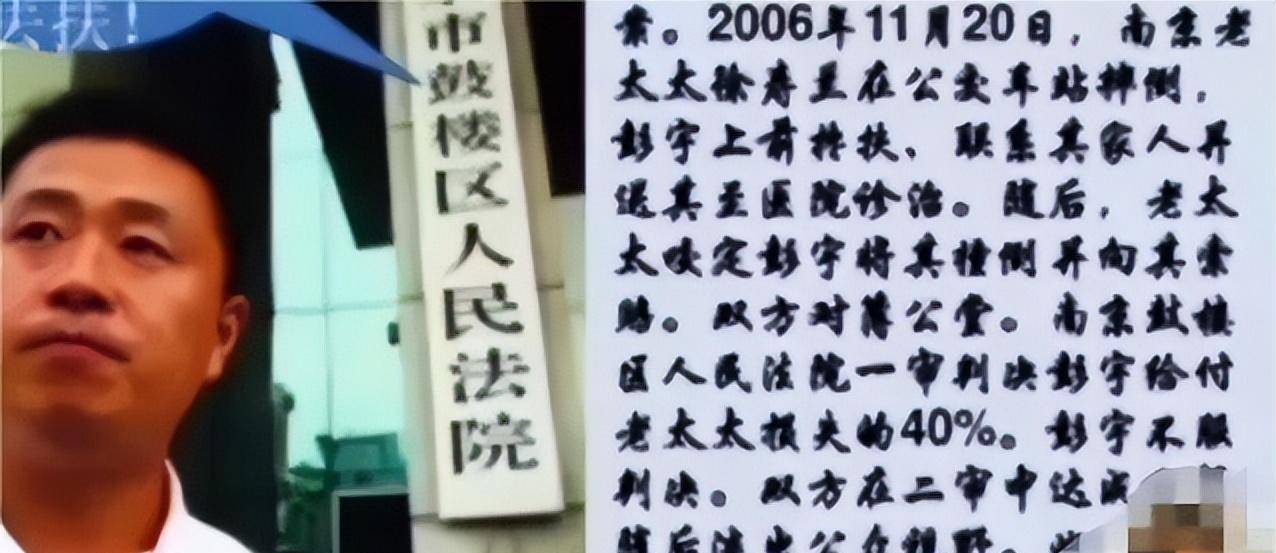 去扶!
市鼓楼区人民法院
案。2006年11月20日，南京老
太太徐寿兰在公交车站摔倒，
彭宇上前搀扶、联系其家人并
送其至医院诊治。随后，老太
太咬定彭宇将其撞倒并向其索
赔。双方对簿公堂。南京鼓楼
区人民法院一审判决彭宇给付
老太太损失的40%。彭宇不服
判决。双方在二审中达成
随后淡出公众视野。